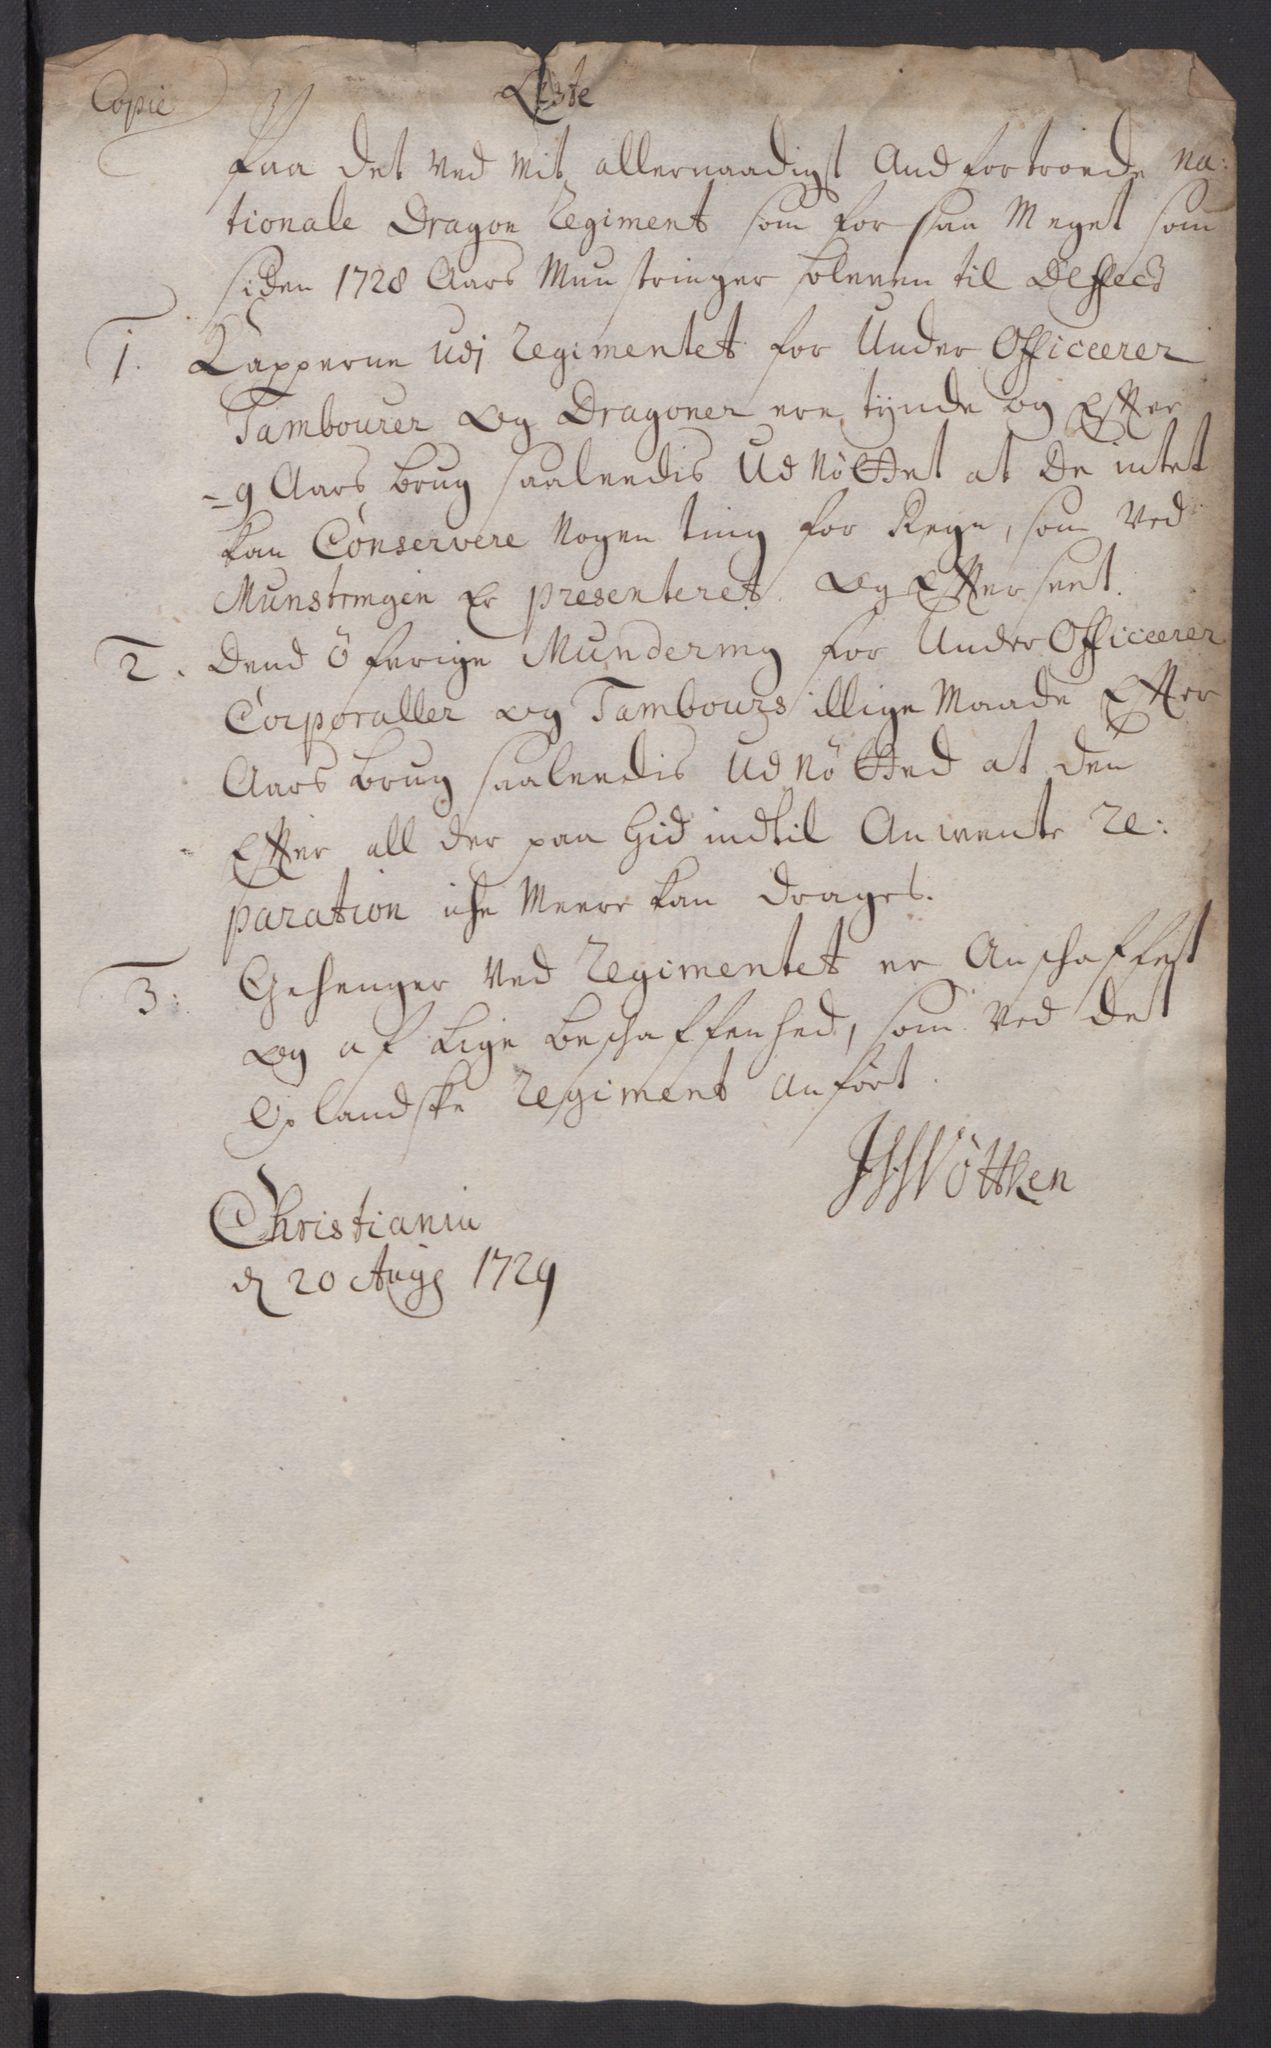 Copie
Liste
Paa det ved mit allernaadigst Andfortroede Na:
tionale Dragon Regiment som for saa Meget som
siden 1728 Aars Munstringer bleven til Deffect
1. Kapperne udj Regimentet for Under Officeerer
Tambourer og Dragoner ere tÿnde og Effter
-9 Aars brug saaleedis Ud Nöttet at De intet
kan Conservere Nogen ting for Regn, som ved
Munstringen Er presenteret og Effterseet.
2. Dend öfverige Mundering for Under Officeerer
Corporaller og Tambours illige Maade Effter
Aars brug saaleedis Ud Nötted at den
Effter all der paa hid indtil Anvente Re:
paration iche Meere kan drages.
3. Gehenger ved Regimentet er Anschaffet
og af Lige beschaffenhed, som ved det
Oplandske Regiment anfört.
Wöttken
Christiania
d 20 Aug 1729